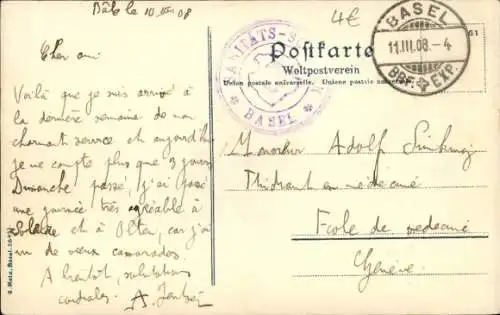 Bâle le 10 III 08
4€
Cher ami
Voilà que je suis arrivé à
la dernière semaine de mon
charmant service et aujourd'hui
je ne compte plus que 3 jours
Dimanche passé, j'ai passé
une journée très agréable à
et à Olten, car j'ai
vu de vieux camarades.
A bientôt, salutations
cordiales. A.
SANITÄTS-S
BASEL
Postkarte
Weltpostverein
Union postale universelle. Unione postale
BASEL
11.III.08.-4
BRF. EXP.
61
Monsieur Adolf
Etudiant en médecine
Ecole de médecine
Genève
Basel